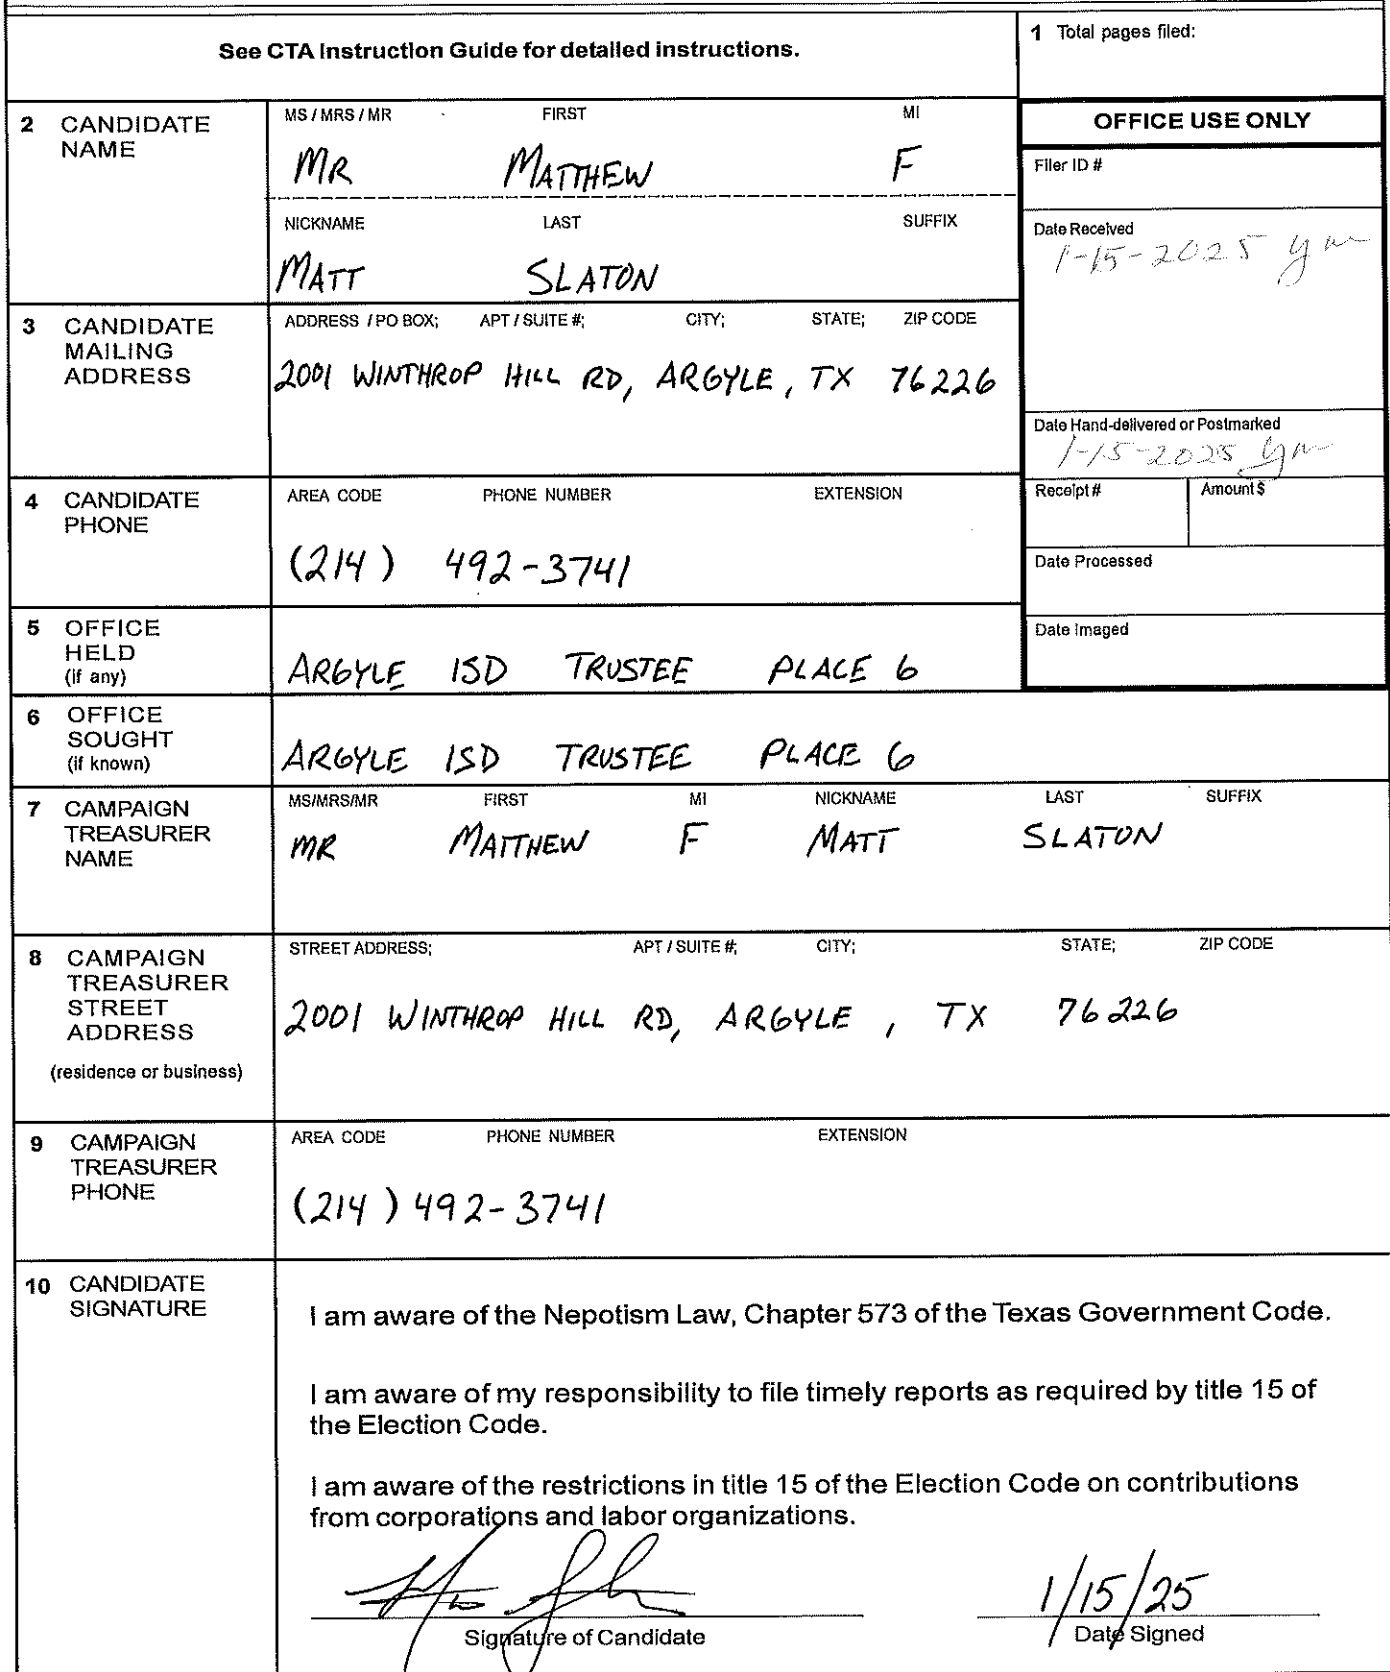 See CTA Instruction Guide for detailed instructions.
1 Total pages filed:
2 CANDIDATE NAME
MS / MRS / MR FIRST MI
MR MATTHEW F
NICKNAME LAST SUFFIX
MATT SLATON
OFFICE USE ONLY
Filer ID #
Date Received
1-15-2025
Date Hand-delivered or Postmarked
1-15-2025
Receipt # Amount $
Date Processed
Date Imaged
3 CANDIDATE MAILING ADDRESS
ADDRESS / PO BOX; APT / SUITE #; CITY; STATE; ZIP CODE
2001 WINTHROP HILL RD, ARGYLE, TX 76226
4 CANDIDATE PHONE
AREA CODE PHONE NUMBER EXTENSION
(214) 492-3741
5 OFFICE HELD (if any)
ARGYLE ISD TRUSTEE PLACE 6
6 OFFICE SOUGHT (if known)
ARGYLE ISD TRUSTEE PLACE 6
7 CAMPAIGN TREASURER NAME
MS/MRS/MR FIRST MI NICKNAME LAST SUFFIX
MR MATTHEW F MATT SLATON
8 CAMPAIGN TREASURER STREET ADDRESS (residence or business)
STREET ADDRESS; APT / SUITE #; CITY; STATE; ZIP CODE
2001 WINTHROP HILL RD, ARGYLE, TX 76226
9 CAMPAIGN TREASURER PHONE
AREA CODE PHONE NUMBER EXTENSION
(214) 492-3741
10 CANDIDATE SIGNATURE
I am aware of the Nepotism Law, Chapter 573 of the Texas Government Code.
I am aware of my responsibility to file timely reports as required by title 15 of
the Election Code.
I am aware of the restrictions in title 15 of the Election Code on contributions
from corporations and labor organizations.
1/15/25
Signature of Candidate Date Signed